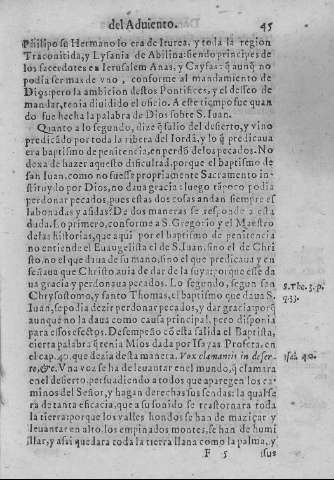 del Aduiento. 45
Philipo su Hermano lo era de Iturea, y toda la region
Traconitida, y Lysania de Abilina: siendo principes de
los sacerdotes en Ierusalem Anas, y Cayfas: q̃ aunq̃ no
podia ser mas de vno, conforme al mandamiento de
Dios: pero la ambicion destos Pontifices, y el desseo de
mandar, tenia diuidido el oficio. A este tiẽpo fue quan
do fue hecha la palabra de Dios sobre S. Iuan.
Quanto a lo segundo, dize q̃ salio del desierto, y vino
predicãdo por toda la ribera del Iordã, y lo q̃ predicaua
era baptismo de penitencia, en perdõ de los pecados. No
dexa de hazer aquesto dificultad, porque el baptismo de
san Iuan, como no fuesse propriamente Sacramento in-
stituylo por Dios, no daua gracia: luego tãpoco podia
perdonar pecados, pues estas dos cosas andan siempre es
labonadas y asidas? De dos maneras se responde a esta
duda. Lo primero, conforme a S. Gregorio y el Maestro
de las historias, que aqui por el baptismo de penitencia
no entiende el Euangelista el de S. Iuan, sino el de Chri
sto, no el que daua de su mano, sino el que predicaua y en
señaua que Christo auia de dar de la suya: porque esse da
ua gracia y perdonaua pecados. Lo segundo, segun san
Chrysostomo, y santo Thomas, el baptismo que daua S.
Iuan, se podia dezir perdonar pecados, y dar gracia: porq̃
aunque no la daua como causa principal, pero disponia
para essos efectos. Desempeño cõ esta salida el Baptista,
cierta palabra q̃ tenia Dios dada por Isayas Profeta, en
el cap. 40. que dezia desta manera. Vox clamantis in deser-
to, &c. Vna voz se ha de leuantar en el mundo, q̃ clamara
en el desierto, persuadiendo a todos que aparegen los ca
minos del Señor, y hagan derechas sus sendas: la qual se
ra de tanta eficacia, que a su sonido se trastornara toda
la tierra: porque los valles hondos se han de maziçar y
leuantar en alto, los empinados montes, se han de humi
llar, y assi quedara toda la tierra llana como la palma, y
F 5 sus
S. Tho. 3. p.
Isai. 40.